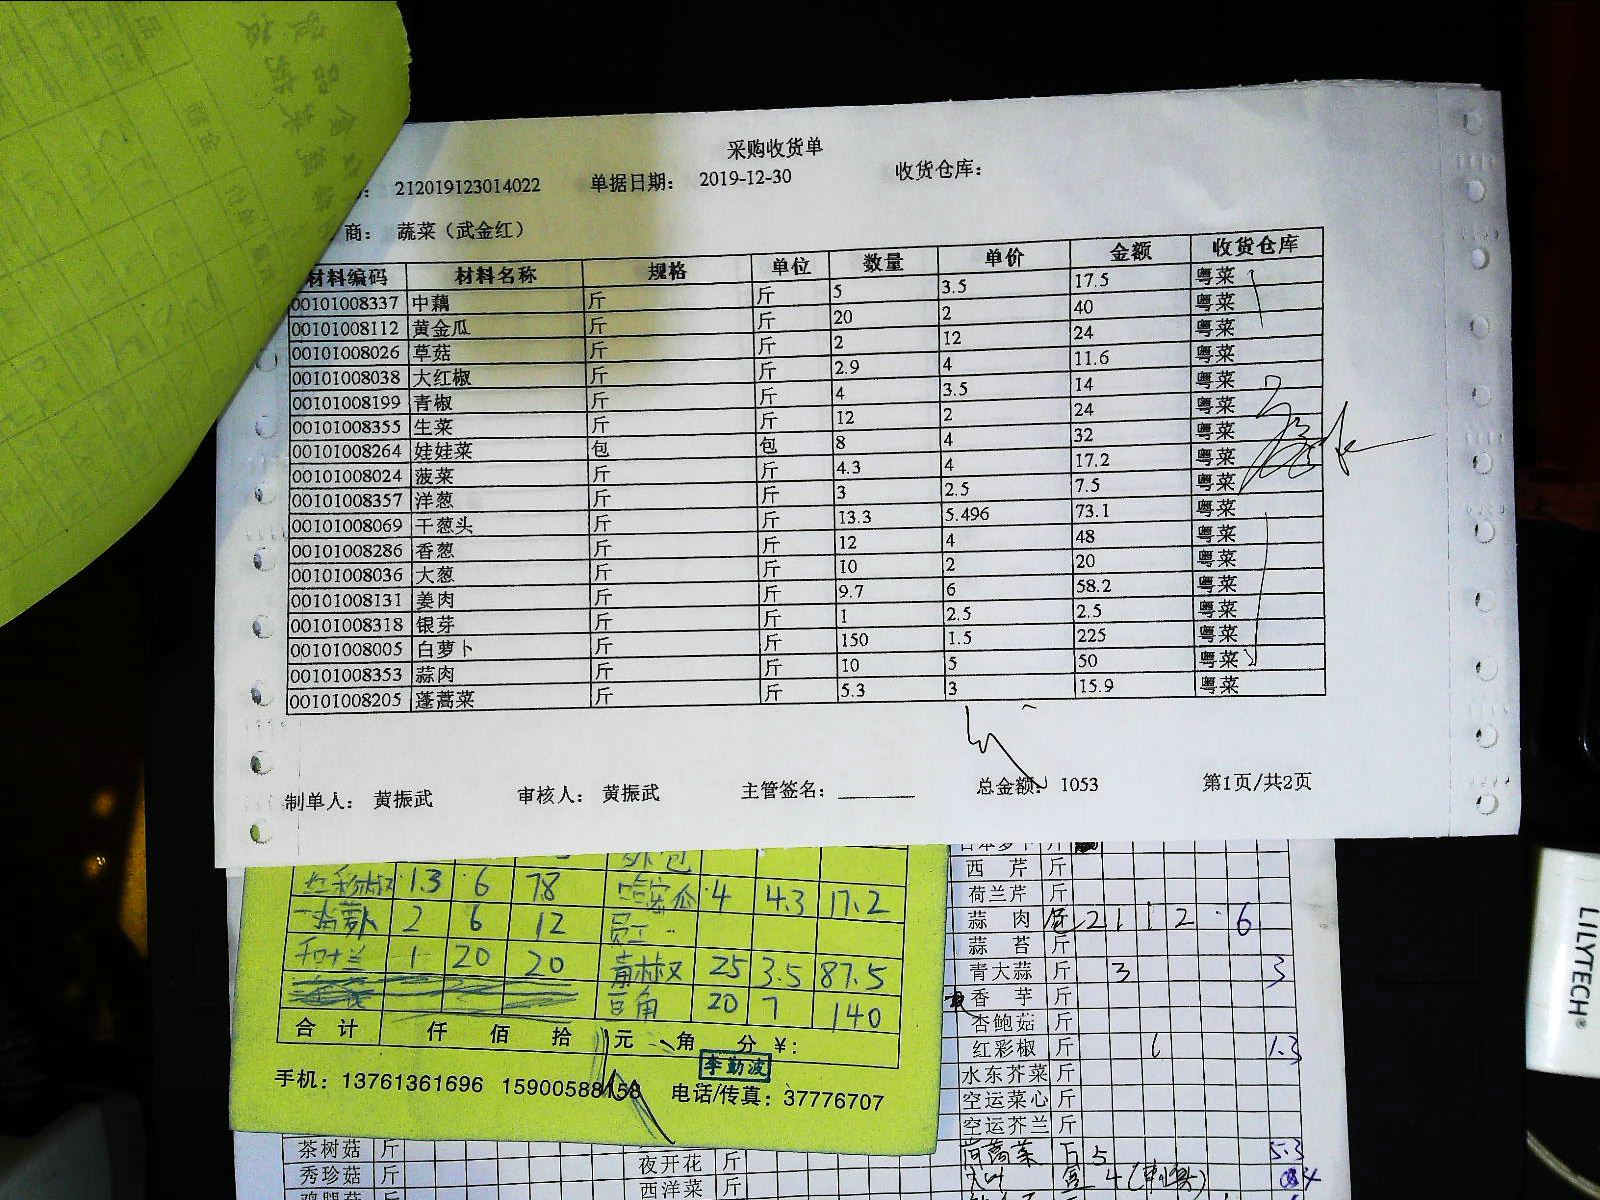 采购收货单
212019123014022 单据日期: 2019-12-30 收货仓库:
商: 蔬菜（武金红）
材料编码 材料名称 规格 单位 数量 单价 金额 收货仓库
00101008337 中藕 斤 斤 5 3.5 17.5 粤菜
00101008112 黄金瓜 斤 斤 20 2 40 粤菜
00101008026 草菇 斤 斤 2 12 24 粤菜
00101008038 大红椒 斤 斤 2.9 4 11.6 粤菜
00101008199 青椒 斤 斤 4 3.5 14 粤菜
00101008355 生菜 斤 斤 12 2 24 粤菜
00101008264 娃娃菜 包 包 8 4 32 粤菜
00101008024 菠菜 斤 斤 4.3 4 17.2 粤菜
00101008357 洋葱 斤 斤 3 2.5 7.5 粤菜
00101008069 干葱头 斤 斤 13.3 5.496 73.1 粤菜
00101008286 香葱 斤 斤 12 4 48 粤菜
00101008036 大葱 斤 斤 10 2 20 粤菜
00101008131 姜肉 斤 斤 9.7 6 58.2 粤菜
00101008318 银芽 斤 斤 1 2.5 2.5 粤菜
00101008005 白萝卜 斤 斤 150 1.5 225 粤菜
00101008353 蒜肉 斤 斤 10 5 50 粤菜
00101008205 蓬蒿菜 斤 斤 5.3 3 15.9 粤菜
制单人: 黄振武 审核人: 黄振武 主管签名: 总金额: 1053 第1页/共2页
红彩椒 1.3 6 78 哈密瓜 4 4.3 17.2
2 6 12 员工
1 20 20 青椒 25 3.5 87.5
豆角 20 7 140
合计 仟 佰 拾 元 角 分 ¥:
李勤波
手机: 13761361696 15900588158 电话/传真: 37776707
西芹 斤
荷兰芹 斤
蒜肉 2 1 1 2 6
蒜苔 斤
青大蒜 斤 3 3
香芋 斤
杏鲍菇 斤
红彩椒 斤 1 1.3
水东芥菜 斤
空运菜心 斤
空运芥兰 斤
茼蒿菜 斤 5 5.3
茶树菇 斤 夜开花 斤
秀珍菇 斤 西洋菜 斤
LILYTECH